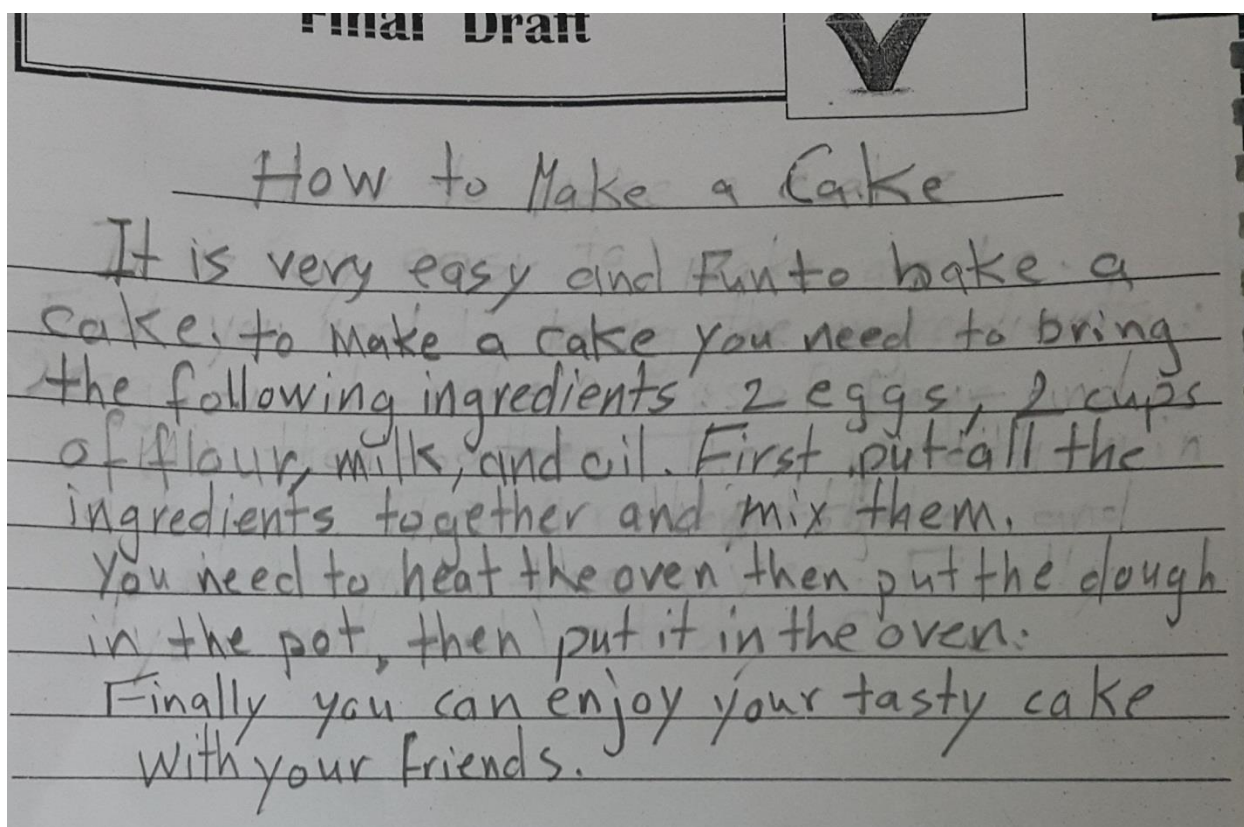 Final Draft
How to Make a Cake
It is very easy and Fun to bake a
cake. to Make a cake you need to bring
the following ingredients 2 eggs, 2 cups
of flour, milk, and oil. First put all the
ingredients together and mix them.
You need to heat the oven then put the dough
in the pot, then put it in the oven.
Finally you can enjoy your tasty cake
with your friends.